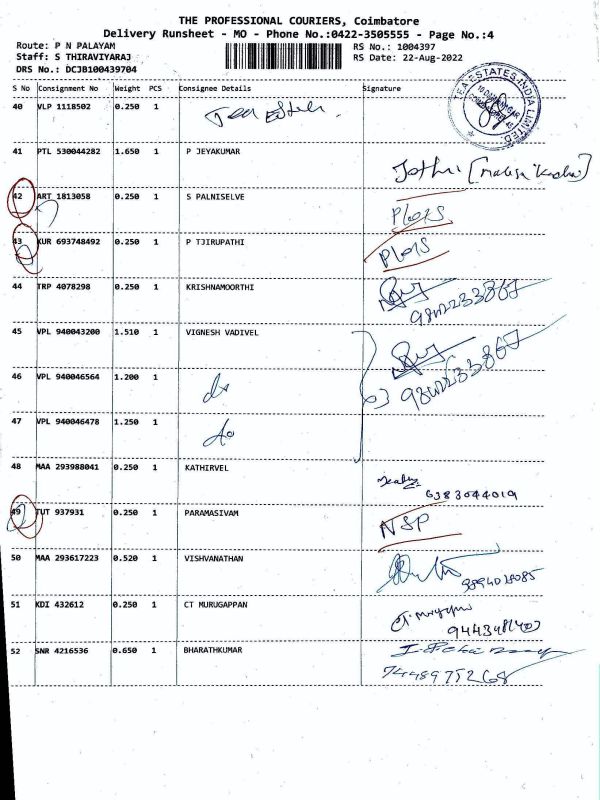 THE PROFESSIONAL COURIERS, Coimbatore
Delivery Runsheet - MO - Phone No.:0422-3505555 - Page No.:4
Route: P N PALAYAM RS No.: 1004397
Staff: S THIRAVIYARAJ RS Date: 22-Aug-2022
DRS No.: DCJB100439704
S No Consignment No Weight PCS Consignee Details Signature
TEA ESTATES INDIA LIMITED
40 VLP 1118502 0.250 1 Tea Estate
41 PTL 530044282 1.650 1 P JEYAKUMAR Jothi
42 ART 1813058 0.250 1 S PALNISELVE
43 KUR 693748492 0.250 1 P TJIRUPATHI
44 TRP 4078298 0.250 1 KRISHNAMOORTHI
45 VPL 940043200 1.510 1 VIGNESH VADIVEL
46 VPL 940046564 1.200 1 do
47 VPL 940046478 1.250 1 do
48 MAA 293988041 0.250 1 KATHIRVEL
6383044019
49 TUT 937931 0.250 1 PARAMASIVAM NSP
50 MAA 293617223 0.520 1 VISHVANATHAN
51 KDI 432612 0.250 1 CT MURUGAPPAN
52 SNR 4216536 0.650 1 BHARATHKUMAR
7448975268